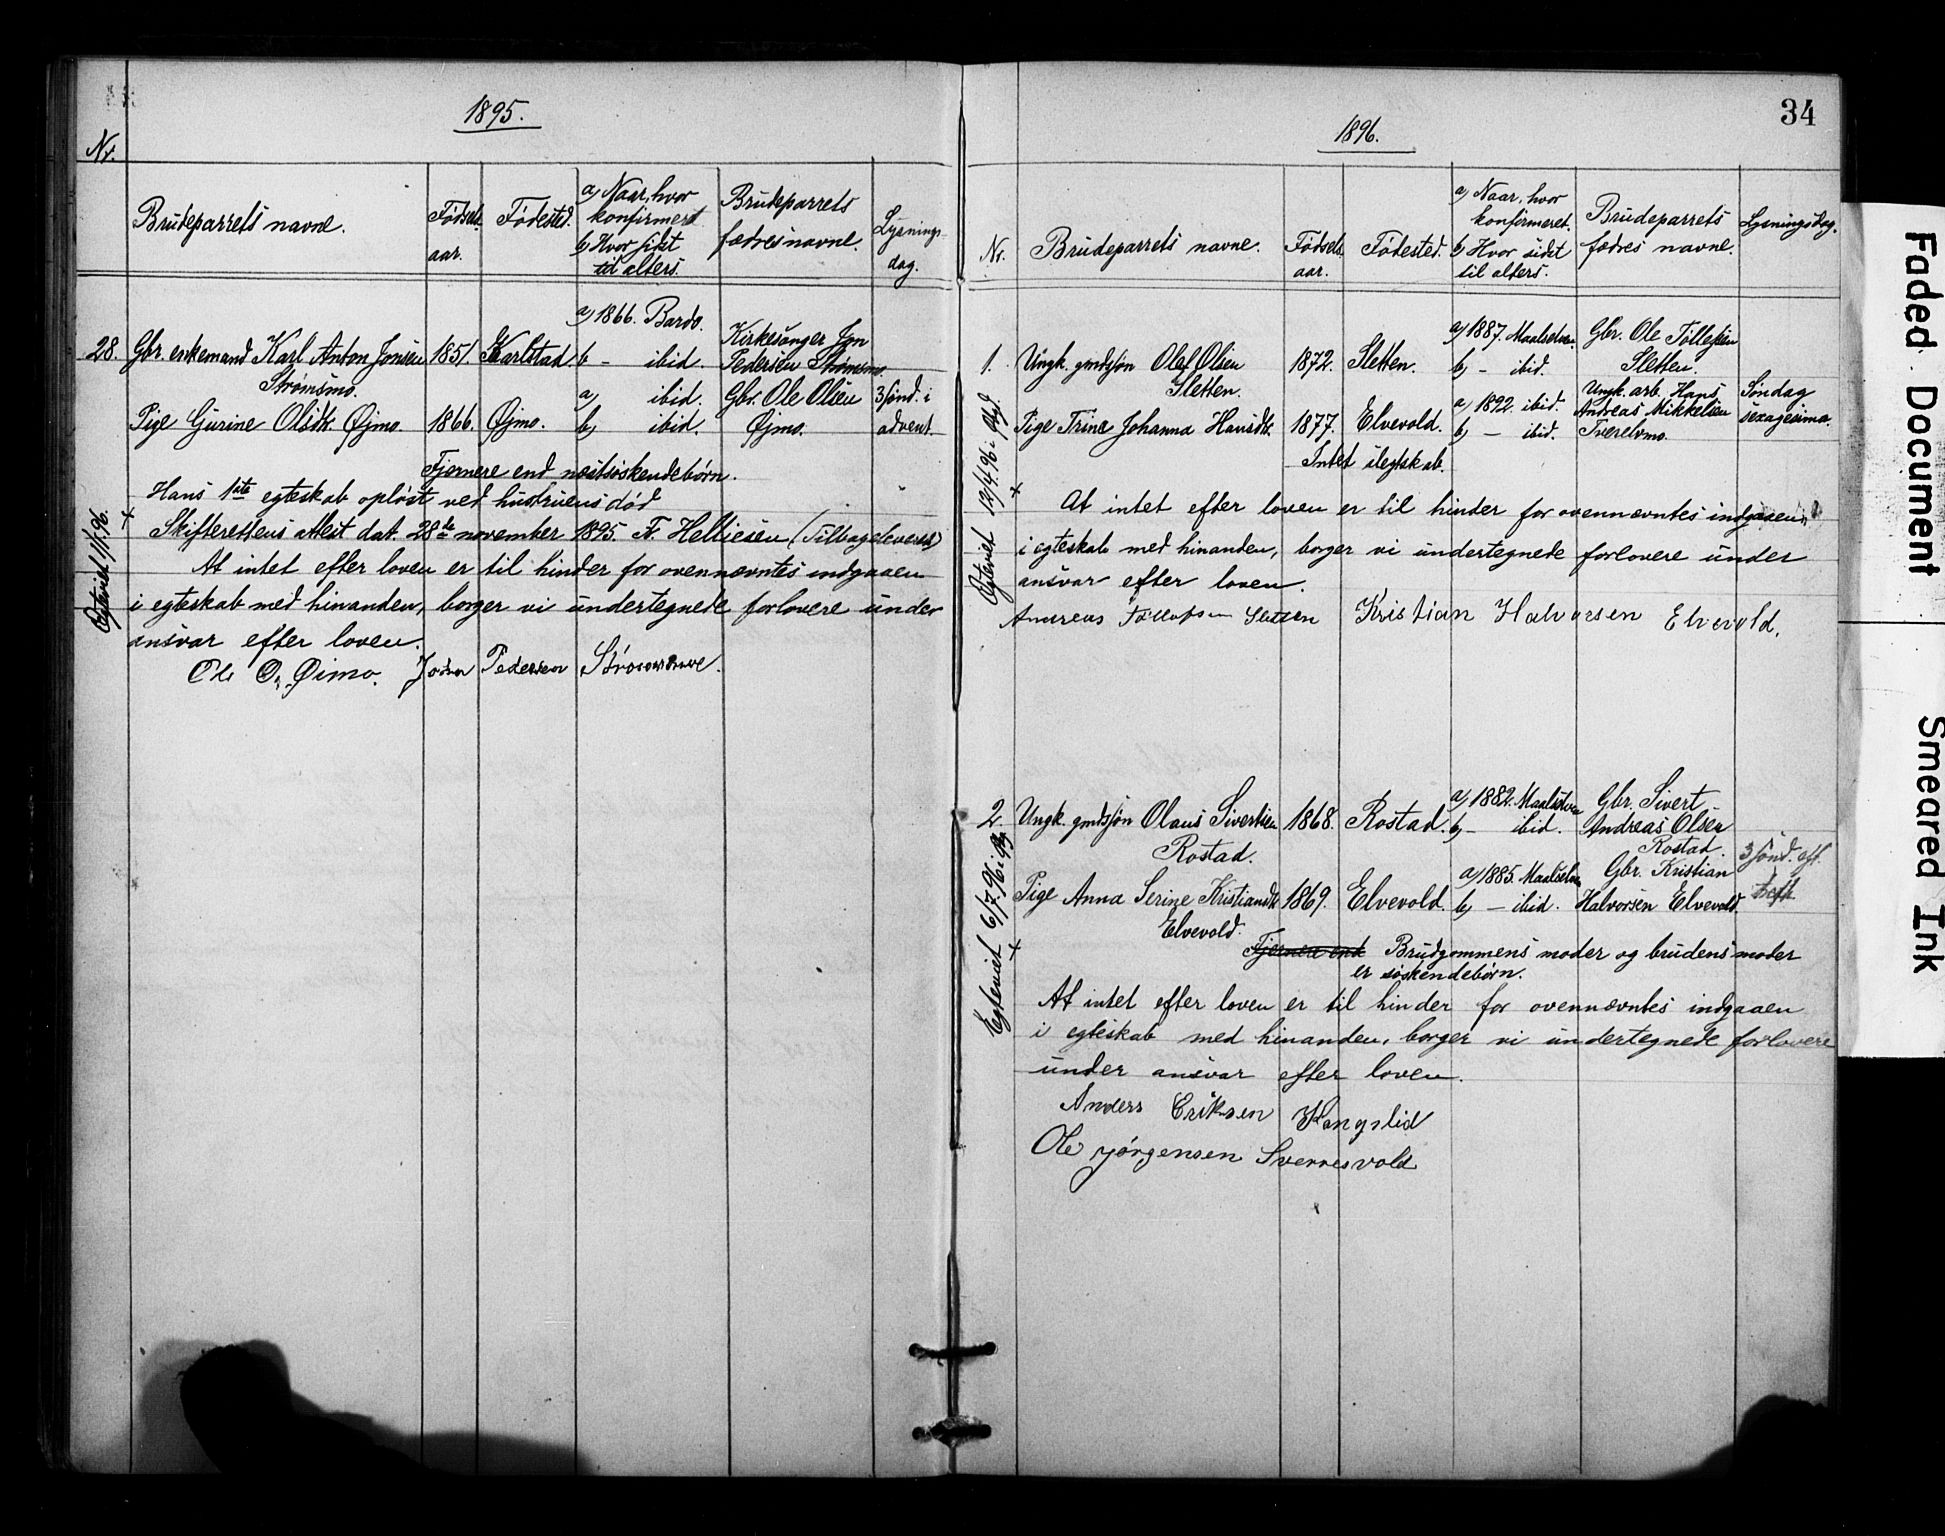 1895.
Nr.
Brudeparrets navne.
Fødsels aar.
Fødested.
a) Naar, hvor
konfirmeret
b) Hvor sidst
til alters.
Brudeparrets
fædres navne.
Lysnings-
dag.
a) 1866. Bardo.
28. Gbr. enkemand Karl Anton Jonsen 1851. Karlstad. b - ibid.
Strømsmo.
Kirkesanger Jon
Pedersen Strømsmo.
Pige Gurine Olsdt. Øjmo. 1866. Øjmo. a) ibid.
b) ibid.
Gbr. Ole Olsen
Øjmo.
3 sønd. i
advent.
Fjernere end næstsøskendebørn.
Hans 1ste egteskab opløst ved hustruens død
Skifterettens attest dat. 28de november 1895. F. Helliesen (Tilbageleveret)
At intet efter loven er til hinder for ovennævntes indgaaen
i egteskab med hinanden, borger vi undertegnede forlovere under
ansvar efter loven.
Ole O. Øimo. John Pedersen Strømsmoe.
+ Egteviet 1/1.96.
34
1896.
Nr.
Brudeparrets navne.
Fødsels
aar.
Fødested.
a) Naar, hvor
konfirmeret.
b) Hvor sidst
til alters.
Brudeparrets
fædres navne.
Lysningsdag.
1. Ungk. gmdsøn Olaf Olsen 1872. Sletten.
Sletten.
a) 1887. Maalselven.
b) - ibid.
Gbr. Ole Tollefsen
Sletten.
Pige Trine Johanna Hansdt. 1877. Elvevold.
a) 1892. ibid.
b) - ibid.
Ungk. arb. Hans
Andreas Mikkelsen
Tverelvmo.
Søndag
sexagesima.
Intet slegtskab.
At intet efter loven er til hinder for ovennævntes indgaaen
i egteskab med hinanden, borger vi undertegnede forlovere under
ansvar efter loven.
Andreas Tollefsen Sletten Kristian Halvorsen Elvevold.
+ Egteviet 12/4.96 i
2. Ungk. gmdsøn Olaus Sivertsen 1868. Rostad.
Rostad.
a) 1882. Maalselven
b) - ibid.
Gbr. Sivert
Andreas Olsen
Rostad.
Pige Anna Serine Kristiansdt. 1869. Elvevold.
Elvevold.
a) 1885. Maalselven
b) - ibid.
Gbr. Kristian
Halvorsen Elvevold.
3 sønd. eft.
Fjernere end Brudgommens moder og brudens moder
er søskendebørn.
At intet efter loven er til hinder for ovennævntes indgaaen
i egteskab med hinanden, borger vi undertegnede forlovere
under ansvar efter loven.
Anders Eriksen Kongslid
Ole Jørgensen Sverresvold
+ Egteviet 6/7.96 i
Faded Document
Smeared Ink